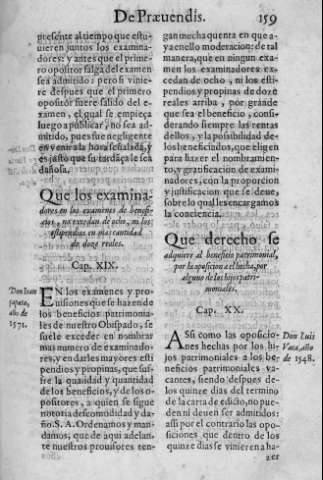 De Præuendis.
159
presente al tiempo que estu-
uieren juntos los examina-
dores: y antes que el primero
opositor salga del examen
sea admitido: pero si vinie
re despues que el primero
opositor fuere salido del e-
xamen, el qual se empieça
luego a publicar, no sea ad-
mitido, pues fue negligente
en venir a la hora señalada, y
es justo que su tardãça le sea
dañosa.
Que los examina-
dores en los examenes de benefi-
cios, no excedan de ocho, ni los
estipendios en mas cantidad
de doze reales.
Cap. XIX.
Don Iuan
çapata,
año de
1571.
EN los examenes y pro-
uisiones que se hazen de
los beneficios patrimonia-
les de nuestro Obispado, se
suele exceder en nombrar
mas numero de examinado-
res, y en darles mayores esti
pendios y propinas, que suf-
fre la quãtidad y quantidad
de los beneficios, y de los o-
positores, a quien se sigue
notoria descomodidad y da-
ño. S. A. Ordenamos y man-
damos, que de aqui adelan-
te nuestros prouisores ten-
gan mucha quenta en que a-
ya en ello moderacion: de tal
manera, que en ningun exa-
men los examinadores ex-
cedan de ocho, ni los esti-
pendios y propinas de doze
reales arriba, por grande
que sea el beneficio, consi-
derando siempre las rentas
dellos, y la possibilidad de
los beneficiados, que eligen
para hazer el nombramien-
to, y gratificacion de exami-
nadores, con la proporcion
y justificacion que se deue,
sobre lo qual les encargamos
la conciencia.
Que derecho se
adquiere al beneficio patrimonial,
por la oposicion a el hecha, por
alguno de los hijos patri-
moniales.
Cap. XX.
Don Luis
Vaca, año
de 1548.
ASsi como las oposicio-
nes hechas por los hi-
jos patrimoniales a los be-
neficios patrimoniales va-
cantes, siendo despues de
los quinze dias del termino
de la carta de edicto, no pue-
den ni deuen ser admitidos:
assi por el contrario las opo-
siciones que dentro de los
quinze dias se vinieren a ha-
zer